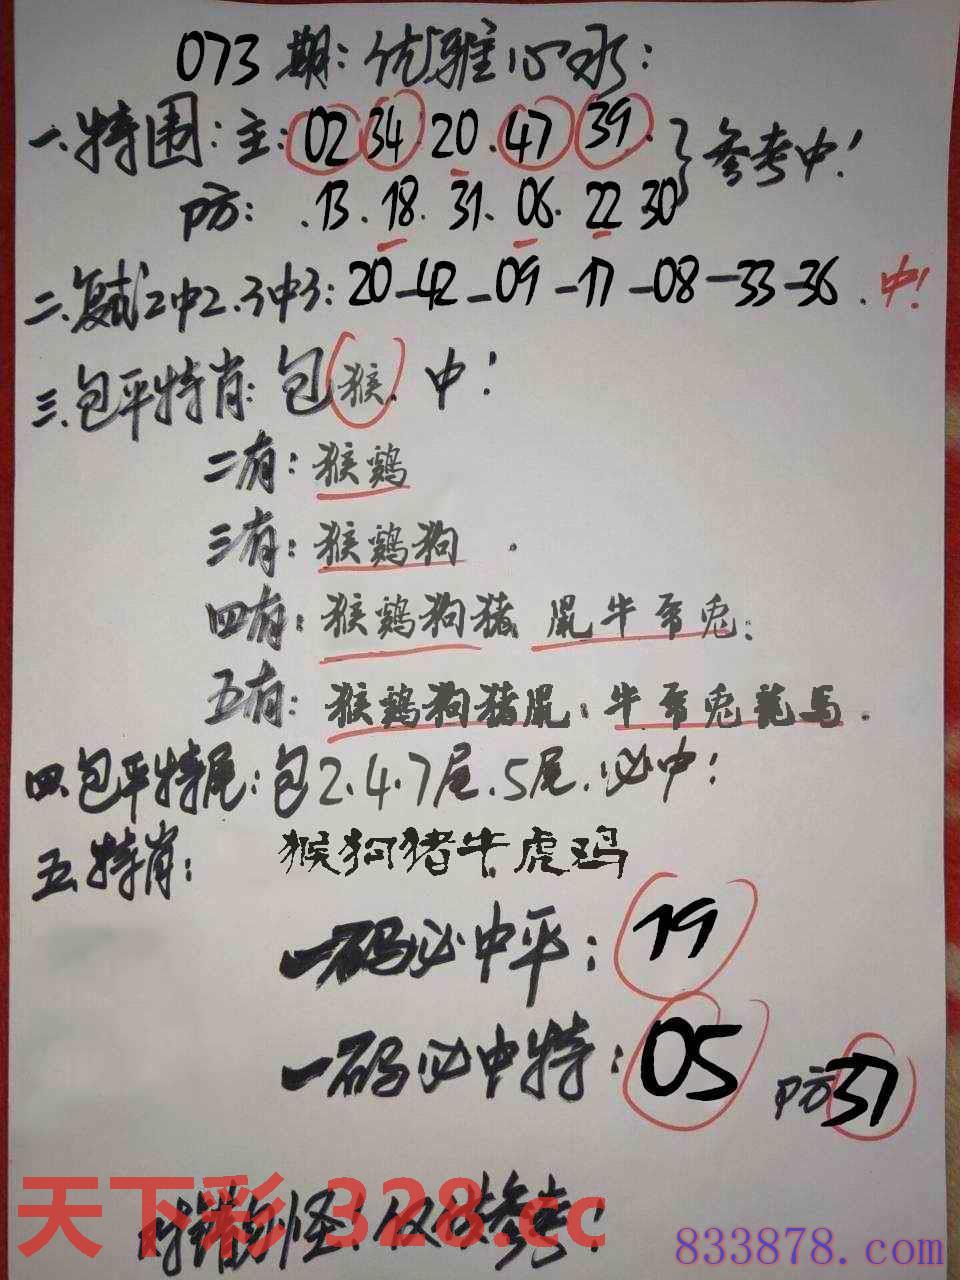 073期：优雅心水：
一.特围：主：02 34 20.47 39.｝参考中！
防：.13.18.31.06.22 30
二.复试2中2.3中3：20-42-09-17-08-33-36.中！
三.包平特肖：包猴.中！
二有：猴鸡
三有：猴鸡狗.
四有：猴鸡狗猪 鼠牛虎兔.
五有：猴鸡狗猪鼠：牛虎兔龍马.
四.包平特尾：包2.4.7尾.5尾.必中！
五.特肖：猴狗猪牛虎鸡
一码必中平：19
一码必中特：05 防37
对错勿怪！仅供参考！
天下彩 328.cc
833878.com